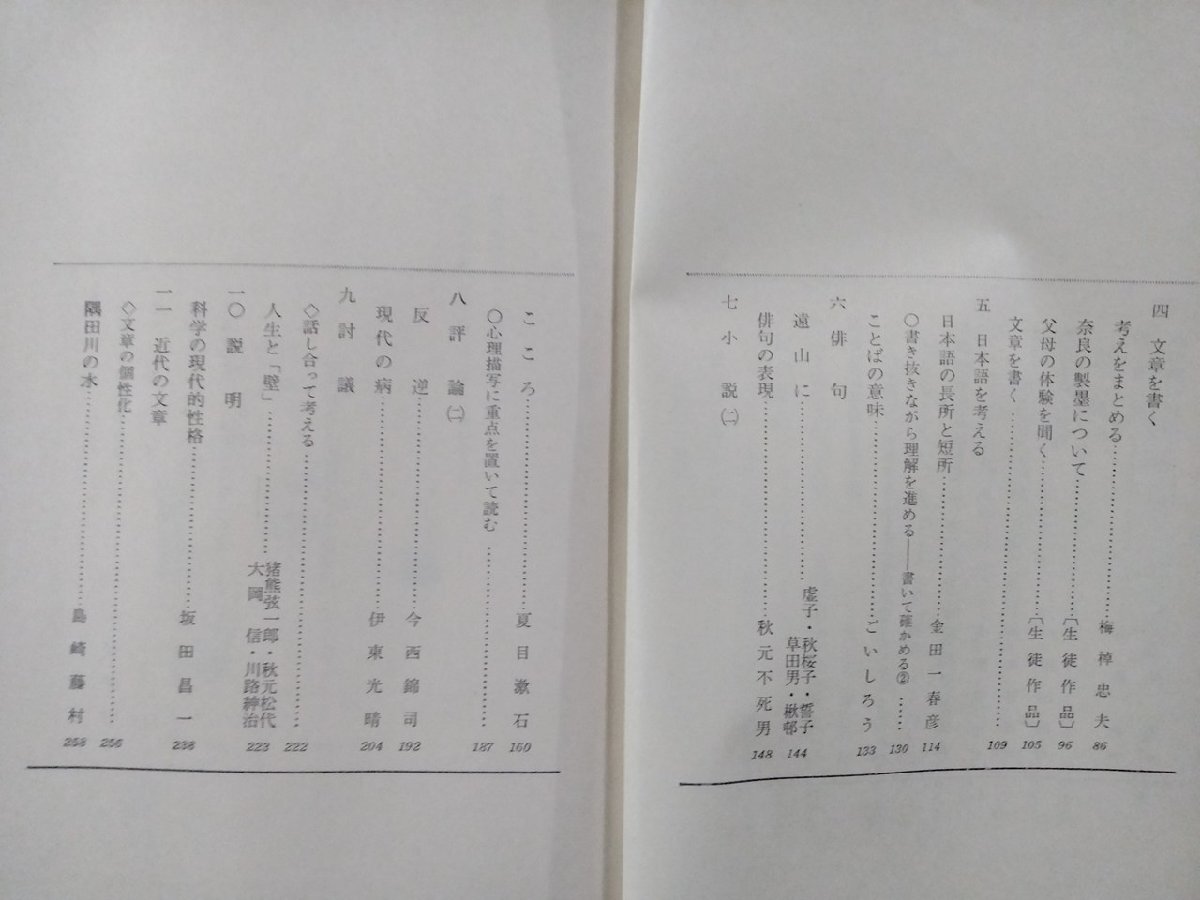 四　文章を書く
考えをまとめる……梅棹忠夫 86
奈良の製墨について……〔生徒作品〕 96
父母の体験を聞く……〔生徒作品〕 105
文章を書く……109
五　日本語を考える
日本語の長所と短所……金田一春彦 114
○書き抜きながら理解を進める——書いて確かめる②……130
ことばの意味……ごいしろう 133
六　俳句
遠山に……虚子・秋桜子・誓子・草田男・楸邨 144
俳句の表現……秋元不死男 148
七　小説㈡
こころ……夏目漱石 160
○心理描写に重点を置いて読む……187
八　評論㈡
反逆……今西錦司 192
現代の病……伊東光晴 204
九　討議
◇話し合って考える……222
人生と「壁」……猪熊弦一郎・秋元松代・大岡信・川路紳治 223
一〇　説明
科学の現代的性格……坂田昌一 238
一一　近代の文章
◇文章の個性化……256
隅田川の水……島崎藤村 258